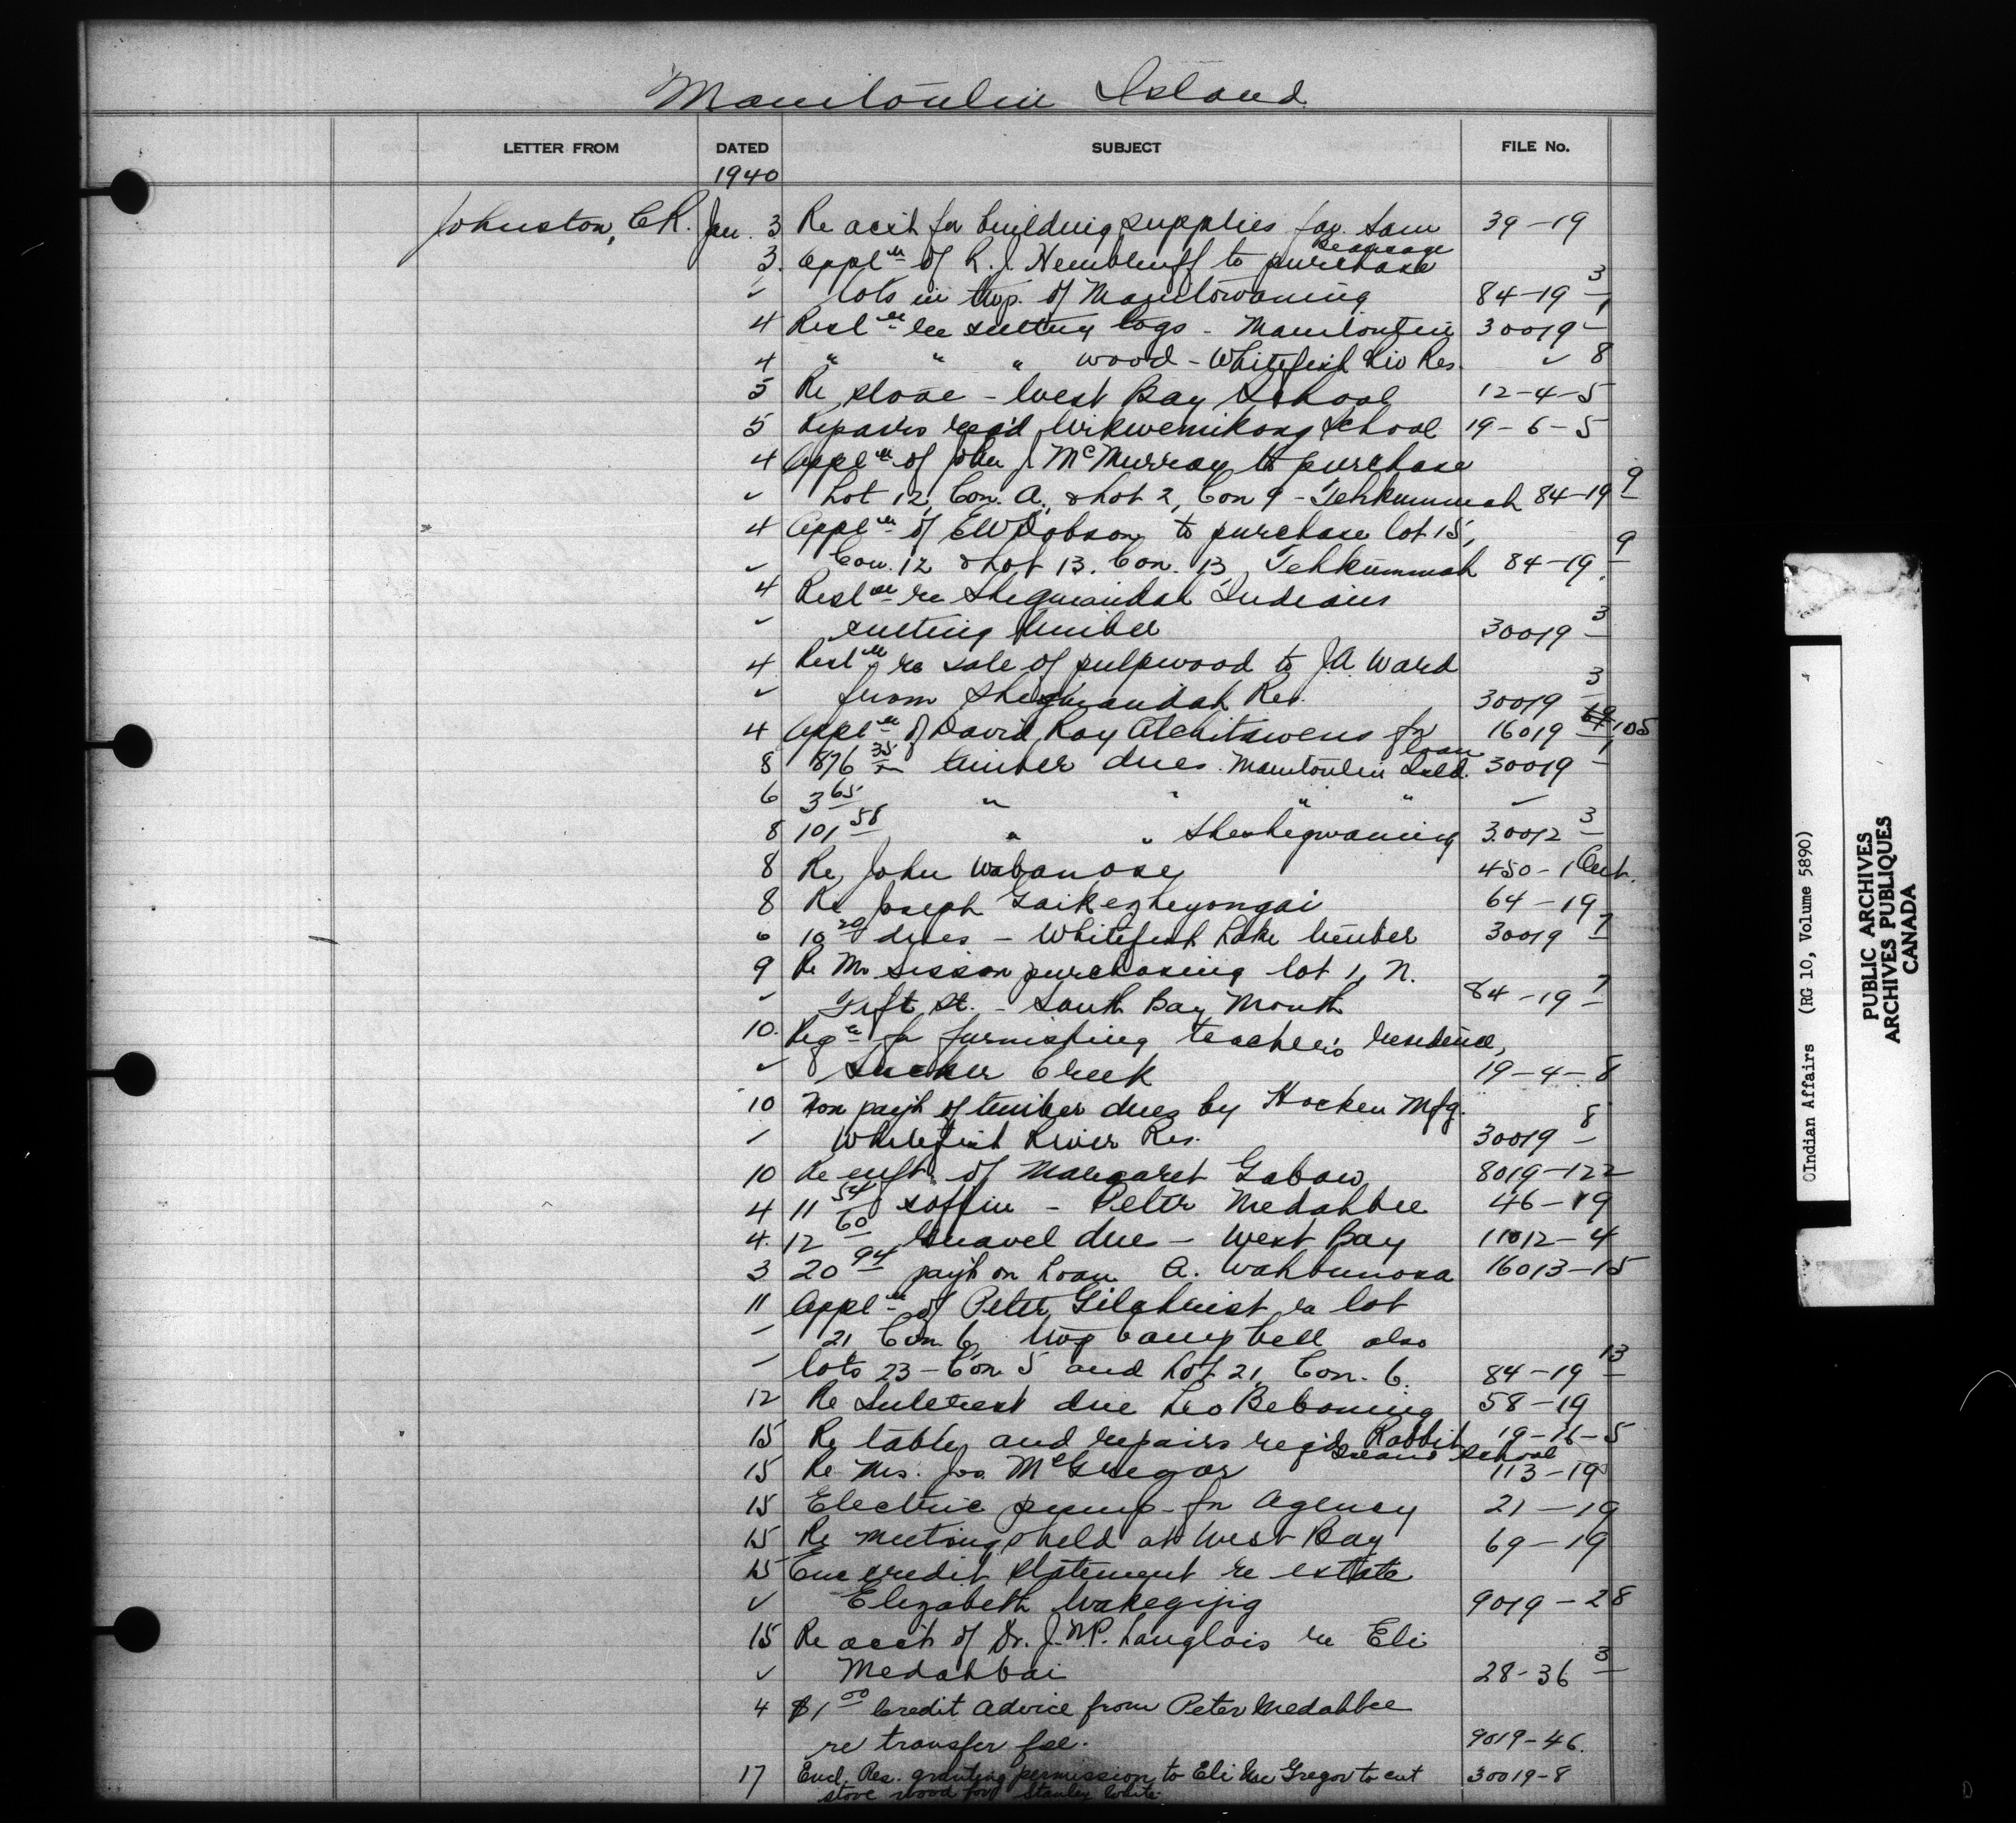 Manitoulin Island
LETTER FROM DATED SUBJECT FILE No.
1940
Johnston, C.R. Jan. 3 Re acct for building supplies fav. Sam 39-19
Beaucage
3. Appl'n of R.J. to purchase
✓ lots in twp. of Manitowaning 84-19 3/1
4 Resl'n re cutting logs - Manitoulin 30019-
4 " " " wood - Whitefish Riv Res. ✓ 8
5 Re stove - West Bay School 12-4-5
5 Repairs req'd Wikwemikong School 19-6-5
4 Appl'n of John J. McMurray to purchase
✓ Lot 12, Con. A, & Lot 2, Con 9 - Tehkummah 84-19 9
4 Appl'n of E W Dobson to purchase lot 15,
✓ Con. 12 & Lot 13. Con. 13, Tehkummah 84-19. 9
4 Resl'n re Sheguiandah Indians
✓ cutting timber 30019 3
4 Resl'n re sale of pulpwood to J.A. Ward
✓ from Sheguiandah Res. 30019 3
4 Appl'n of David Roy Atchitawens for 16019 105
loan
8 876 35 timber dues. Manitoulin Isld. 30019 1
6 3 65 " " " " ✓
8 101 58 " " Sheshegwaning 30012 3
8 Re John Wabanosey 450-1 Ont.
8 Re Joseph Gaikezheyongai 64-19
6 10 20 dues - Whitefish Lake timber 30019 7
9 Re Mr Sisson purchasing lot 1, N.
✓ Tift St. - South Bay Mouth 84-19 7
10. Reqn for furnishing teacher's residence,
✓ Sucker Creek 19-4-8
10 Non pay't of timber dues by Hocken Mfg.
✓ Whitefish River Res. 30019 8
10 Re enft. of Margaret Gabow 8019-122
4 11 54 coffin - Peter Medahbee 46-19
4. 12 60 Gravel due - West Bay 11012-4
3 20 94 pay't on Loan A. Wahbunosa 16013-15
11 Appl'n of Peter Gilchrist re lot
✓ 21 Con. 6, twp Campbell also
✓ lots 23 - Con. 5 and Lot 21, Con. 6. 84-19 13
12 Re Interest due Leo Bebonung 58-19
15 Re table and repairs req'd Rabbit 19-16-5
Island School
15 Re Mrs. Jos. McGregor 113-19
15 Electric pump for Agency 21-19
15 Re meeting held at West Bay 69-19
15 Enc credit statement re estate
✓ Elizabeth Wakegijig 9019-28
15 Re acct of Dr. J.N.P. Langlois re Eli
✓ Medahbai 28-36 3
4 $1 00 Credit Advice from Peter Medahbee
re transfer fee. 9019-46.
17 Encl. Res. granting permission to Eli Mc Gregor to cut 30019-8
stove wood for Stanley White.
OIndian Affairs (RG 10, Volume 5890)
PUBLIC ARCHIVES
ARCHIVES PUBLIQUES
CANADA